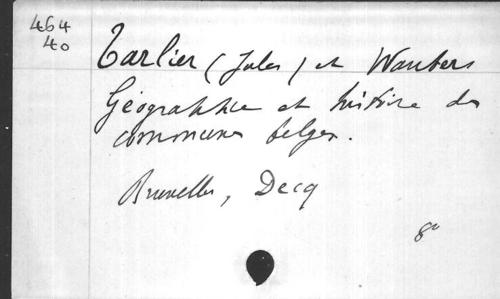 464
40
Tarlier (Jules) et Wauters
Géographie et histoire des
communes belges.
Bruxelles, Decq
8°